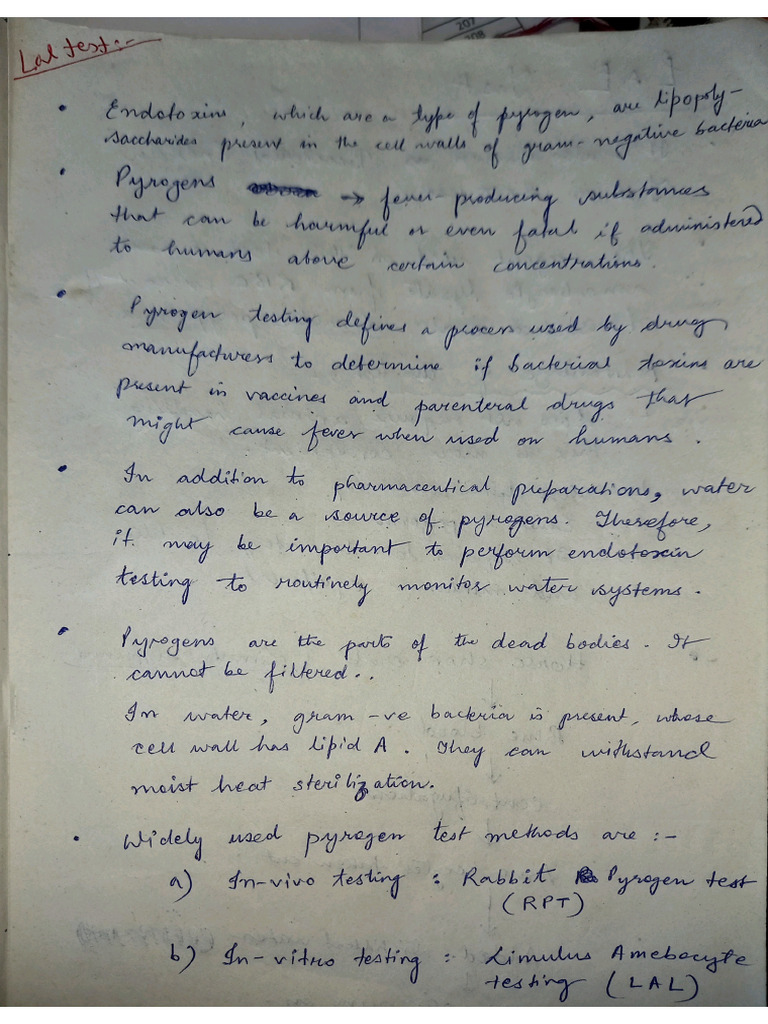 207
208
Lal test:-
• Endotoxins, which are a type of pyrogen, are lipopoly-
saccharides present in the cell walls of gram-negative bacteria
• Pyrogens → fever-producing substances
that can be harmful or even fatal if administered
to humans above certain concentrations.
• Pyrogen testing defines a process used by drug
manufacturers to determine if bacterial toxins are
present in vaccines and parenteral drugs that
might cause fever when used on humans.
• In addition to pharmaceutical preparations, water
can also be a source of pyrogens. Therefore,
it may be important to perform endotoxin
testing to routinely monitor water systems.
• Pyrogens are the parts of the dead bodies. It
cannot be filtered..
In water, gram -ve bacteria is present, whose
cell wall has lipid A. They can withstand
moist heat sterilization.
• Widely used pyrogen test methods are :-
a) In-vivo testing : Rabbit Pyrogen test
(RPT)
b) In-vitro testing : Limulus Amebocyte
testing (LAL)